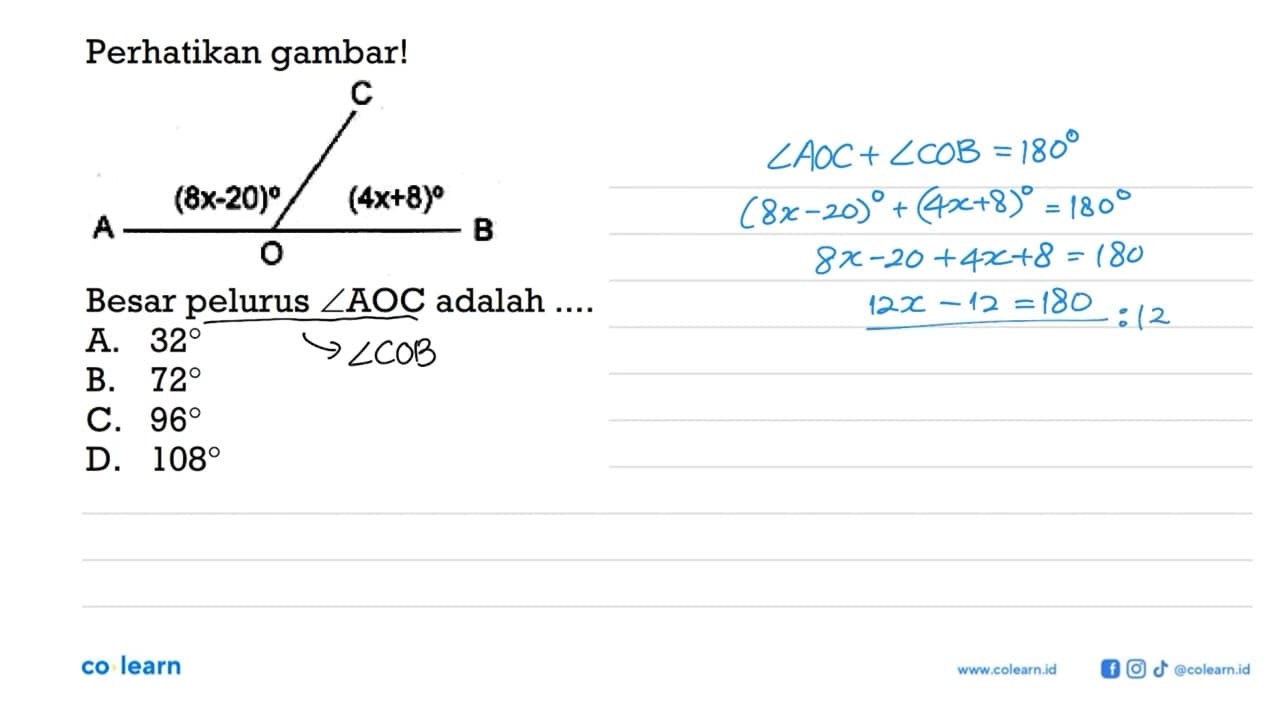 Perhatikan gambar!
C
(8x-20)° (4x+8)°
A B
O
Besar pelurus ∠AOC adalah ....
→ ∠COB
A. 32°
B. 72°
C. 96°
D. 108°
∠AOC + ∠COB = 180°
(8x-20)° + (4x+8)° = 180°
8x-20+4x+8 = 180
12x - 12 = 180 : 12
co learn
www.colearn.id
@colearn.id